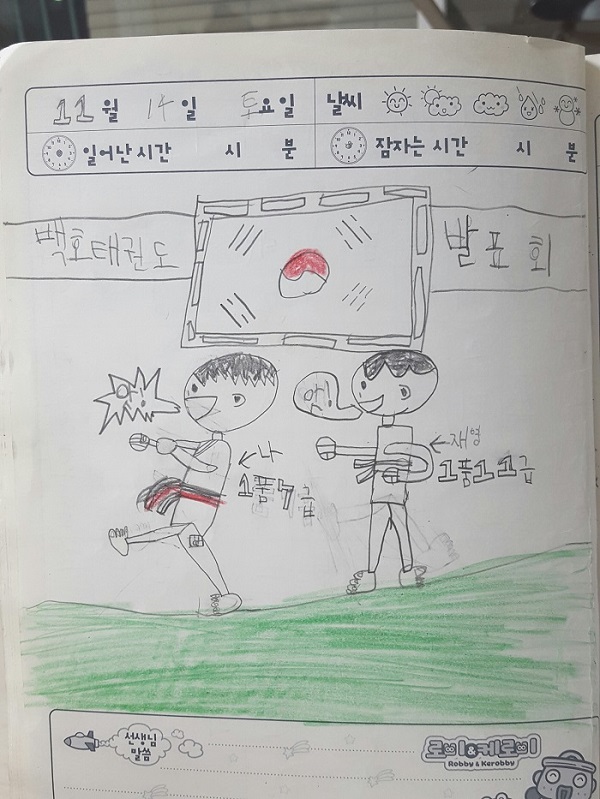 11월 14일 토요일 날씨
일어난 시간 시 분 잠자는 시간 시 분
백호태권도 발표회
야! 얍!
←나 ←재영
1품7급 1품11급
선생님 말씀
로비&케로비
Robby & Kerobby